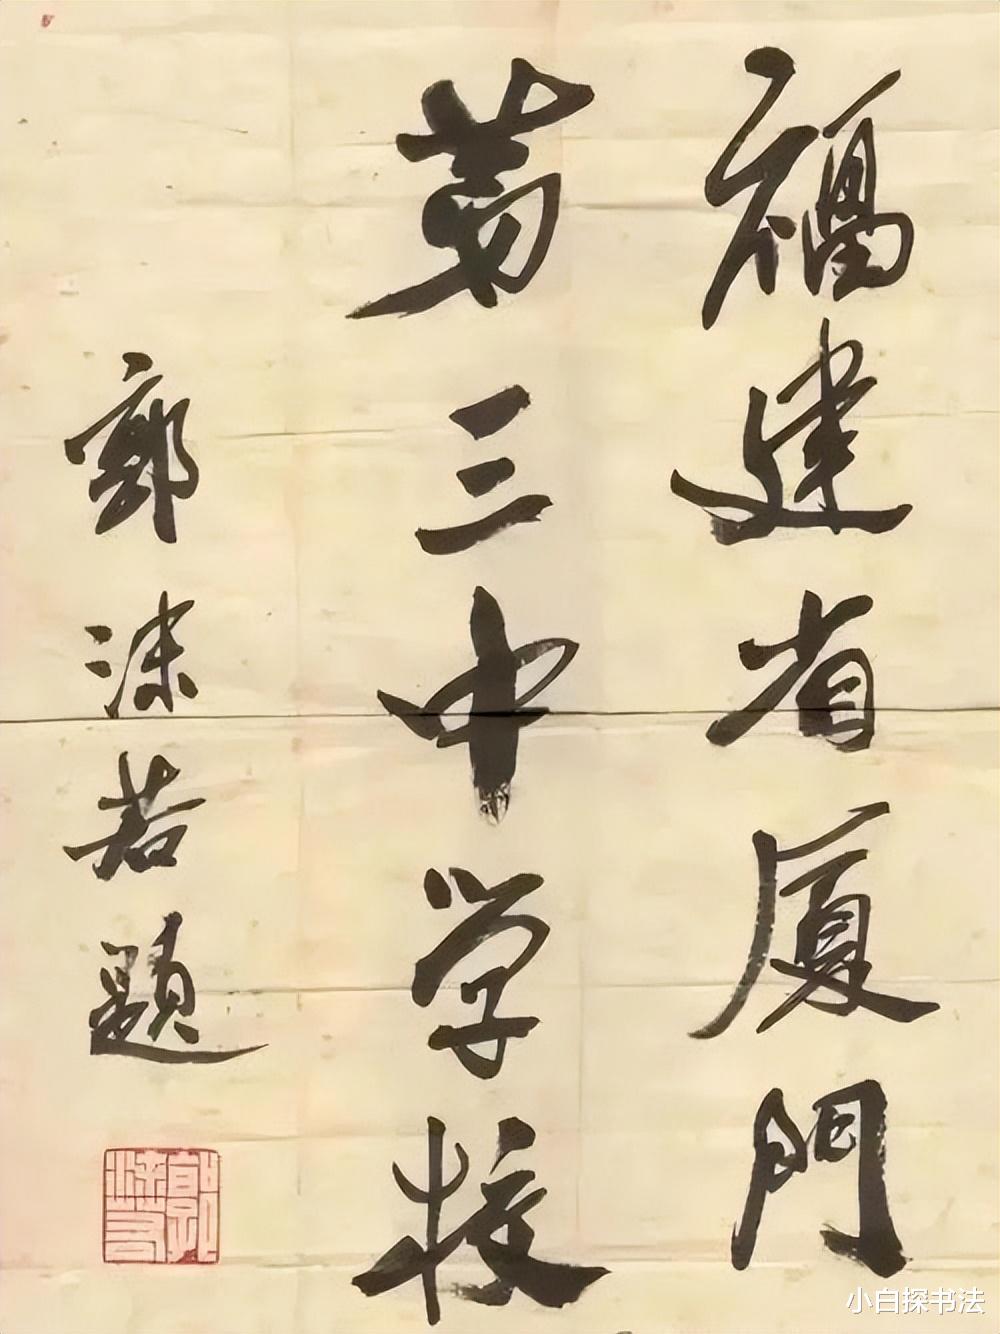 福建省厦門
第三中学校
郭沫若題
郭沫若
小白探书法